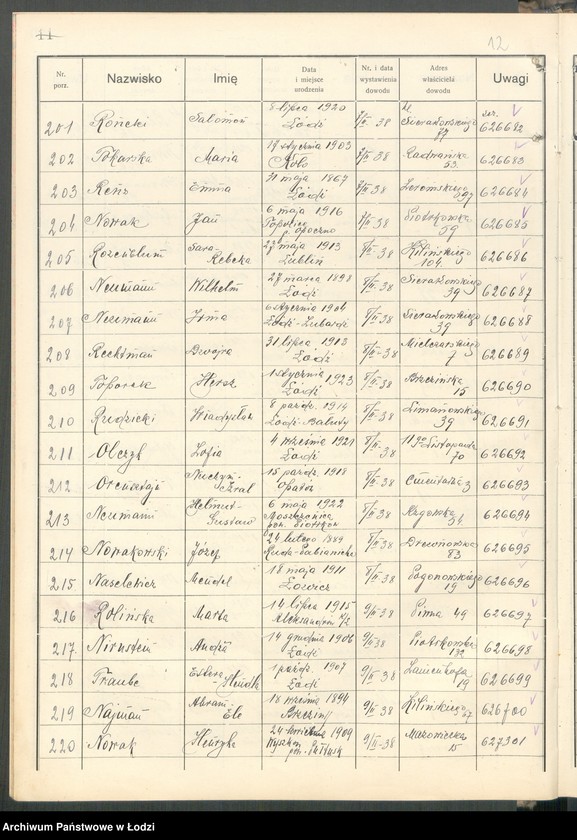 11
12
Nr. porz. Nazwisko Imię Data i miejsce urodzenia Nr. i data wystawienia dowodu Adres właściciela dowodu Uwagi
201 Salomon 8 lipca 1920 Łódź 38 ser. 626682
202 Maria stycznia 1903 Koło 38 Radwańska 53 626683
203 Emma 31 maja 1867 Łódź 8/II-38 Żeromskiego 626684
204 Nowak Jan 6 maja 1916 p. Opoczno 8/II-38 Piotrkowska 59 626685
205 Rozenblum Sara-Rebeka maja 1913 Lublin 8/II-38 Kilińskiego 104 626686
206 Neumann Wilhelm marca 1898 Łódź 8/II-38 Sierakowskiego 39 626687
207 Neumann Irma 6 stycznia 1904 8/II-38 Sierakowskiego 39 626688
208 Rechtman Dwojra 31 lipca 1913 Łódź 8/II-38 Mielczarskiego 7 626689
209 Toporek Hersz 1 stycznia 1923 Łódź 8/II-38 Brzezińska 15 626690
210 Rudzicki Władysław 8 paźdz. 1914 Łódź-Bałuty 8/II-38 Limanowskiego 39 626691
211 Olczyk Zofia 4 września 1921 Łódź 8/II-38 11go Listopada 70 626692
212 15 paźdz. 1918 8/II-38 Cmentarna 3 626693
213 Neumann Helmut-Gustaw 6 maja 1922 Moszczenica pow. Piotrków 8/II-38 Rzgowska 34 626694
214 Nowakowski Józef 24 lutego 1889 Ruda-Pabianicka 8/II-38 Drewnowska 83 626695
215 Naselckier Mendel 18 maja 1911 Łowicz 8/II-38 Pogonowskiego 19 626696
216 Rolińska Marta 14 lipca 1915 Aleksandrów 9/II-38 49 626697
217 Nirnstein 14 grudnia 1906 Łódź 9/II-38 Piotrkowska 132 626698
218 Traube Estera Hendla 1 paźdz. 1907 Łódź 9/II-38 19 626699
219 Najman Abram Ele 18 września 1894 Brzeziny 9/II-38 Kilińskiego 626700
220 Nowak Henryka 24 kwietnia 1909 Wyszków pow. Pułtusk 9/II-38 Mazowiecka 15 627301
Archiwum Państwowe w Łodzi